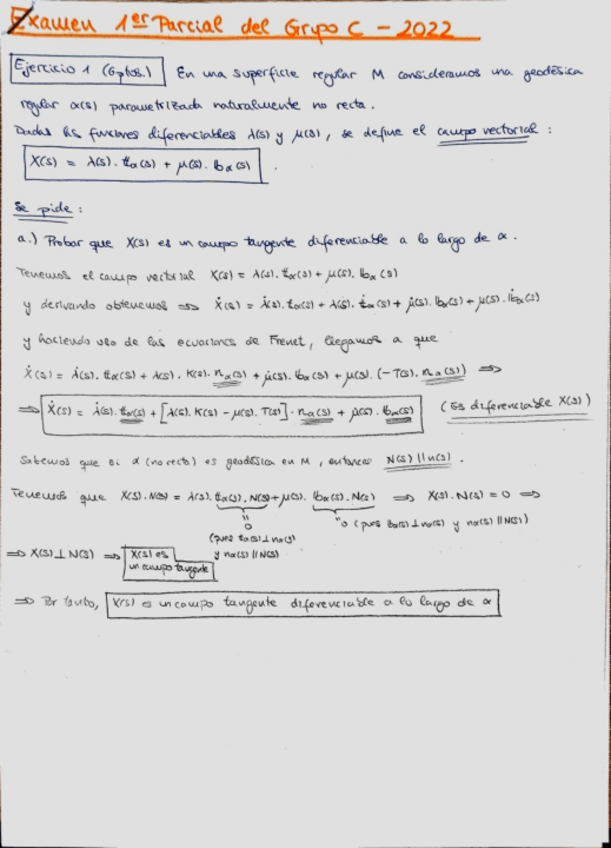 Examen 1er Parcial del Grupo C - 2022
Ejercicio 1 (6 ptos.) En una superficie regular M consideramos una geodésica
regular α(s) parametrizada naturalmente no recta.
Dadas las funciones diferenciables λ(s) y μ(s), se define el campo vectorial:
X(s) = λ(s). tα(s) + μ(s). bα(s) .
Se pide:
a.) Probar que X(s) es un campo tangente diferenciable a lo largo de α.
Tenemos el campo vectorial X(s) = λ(s). tα(s) + μ(s). bα(s)
y derivando obtenemos ⇒ Ẋ(s) = λ̇(s). tα(s) + λ(s). ṫα(s) + μ̇(s). bα(s) + μ(s). ḃα(s)
y haciendo uso de las ecuaciones de Frenet, llegamos a que
Ẋ(s) = λ̇(s). tα(s) + λ(s). K(s). nα(s) + μ̇(s). bα(s) + μ(s). (-T(s). nα(s)) ⇒
⇒ Ẋ(s) = λ̇(s). tα(s) + [λ(s). K(s) - μ(s). T(s)] . nα(s) + μ̇(s). bα(s) (Es diferenciable X(s))
Sabemos que si α (no recta) es geodésica en M, entonces N(s) || n(s).
Tenemos que X(s). N(s) = λ(s). tα(s). N(s) + μ(s). bα(s). N(s) ⇒ X(s). N(s) = 0 ⇒
" 0 (pues tα(s) ⊥ nα(s) y nα(s) || N(s))
" 0 (pues bα(s) ⊥ nα(s) y nα(s) || N(s))
⇒ X(s) ⊥ N(s) ⇒ X(s) es un campo tangente
⇒ Por tanto, X(s) es un campo tangente diferenciable a lo largo de α